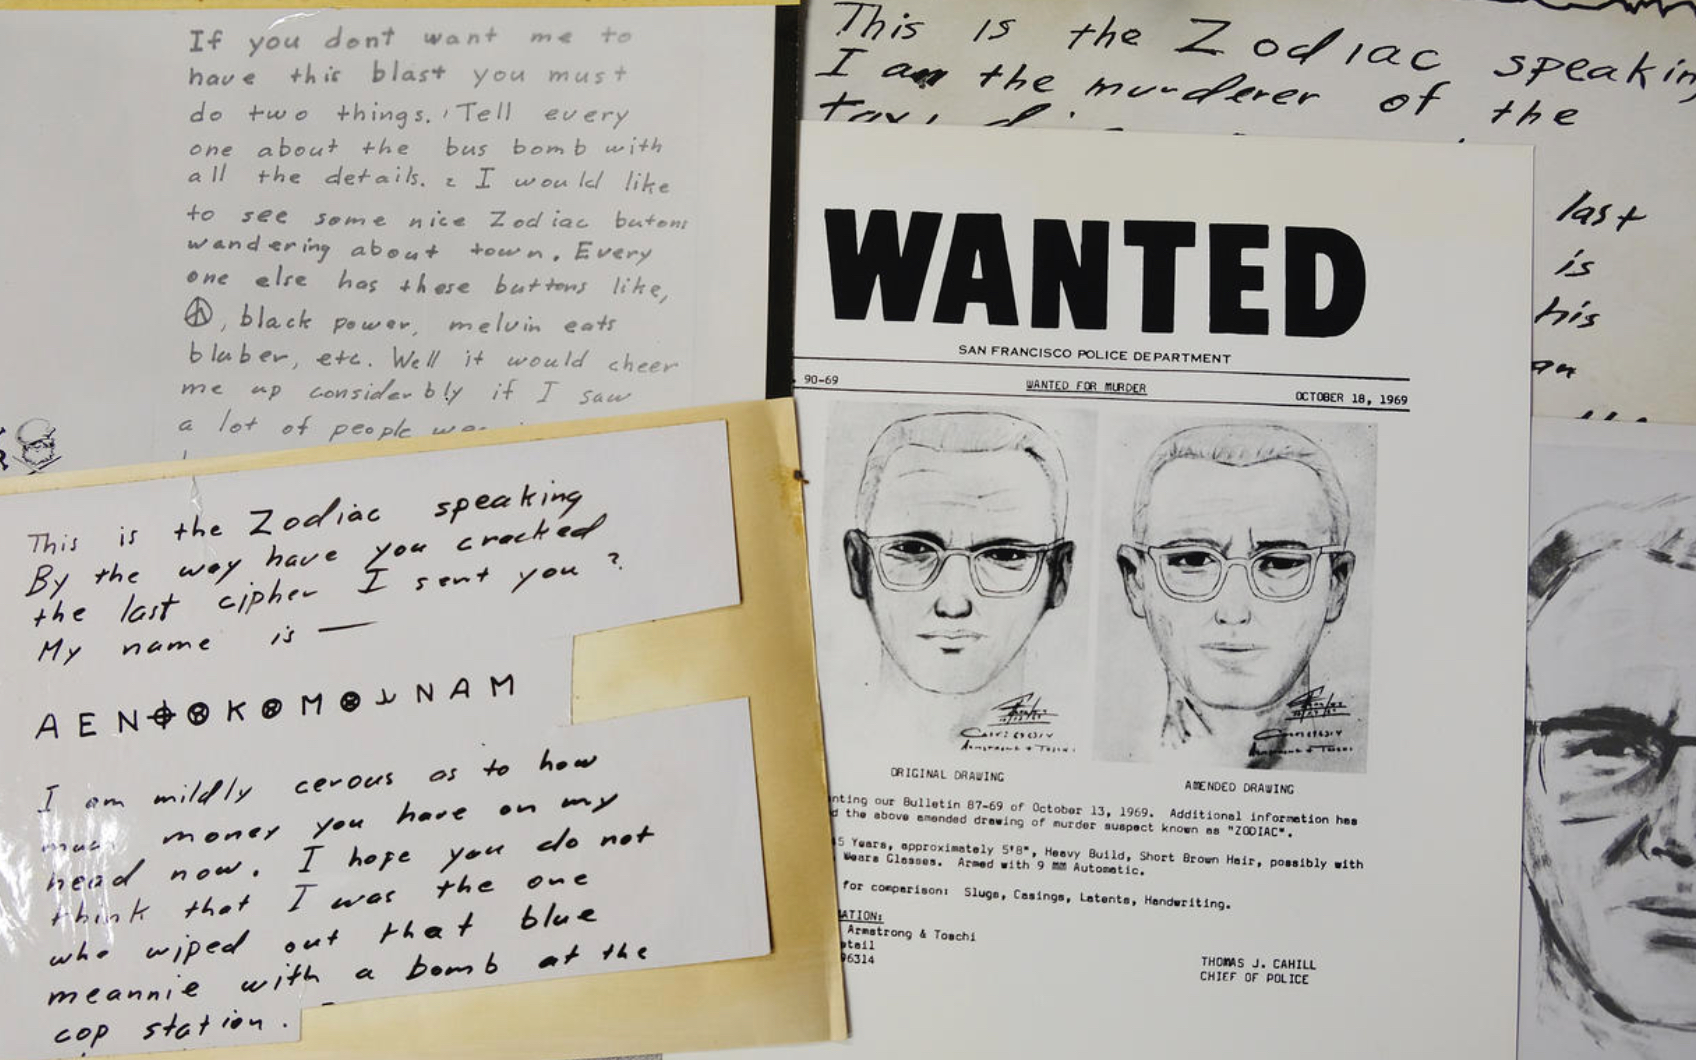 If you dont want me to
have this blast you must
do two things. Tell every
one about the bus bomb with
all the details. 2 I would like
to see some nice Zodiac butons
wandering about town. Every
one else has these buttons like,
, black power, melvin eats
bluber, etc. Well it would cheer
me up considerbly if I saw
a lot of people
This is the Zodiac speaking
By the way have you cracked
the last cipher I sent you ?
My name is —
A E N ⌖ ⊗ K ⊗ M ⊗ N A M
I am mildly cerous as to how
much money you have on my
head now. I hope you do not
think that I was the one
who wiped out that blue
meannie with a bomb at the
cop station.
This is the Zodiac speakin
I am the murderer of the
last
is
his
an
WANTED
SAN FRANCISCO POLICE DEPARTMENT
90-69 WANTED FOR MURDER OCTOBER 18, 1969
ORIGINAL DRAWING AMENDED DRAWING
nting our Bulletin 87-69 of October 13, 1969. Additional information has
d the above amended drawing of murder suspect known as "ZODIAC".
5 Years, approximately 5'8", Heavy Build, Short Brown Hair, possibly with
Wears Glasses. Armed with 9 MM Automatic.
for comparison: Slugs, Casings, Latents, Handwriting.
ATION:
Armstrong & Toschi
etail
96314
THOMAS J. CAHILL
CHIEF OF POLICE